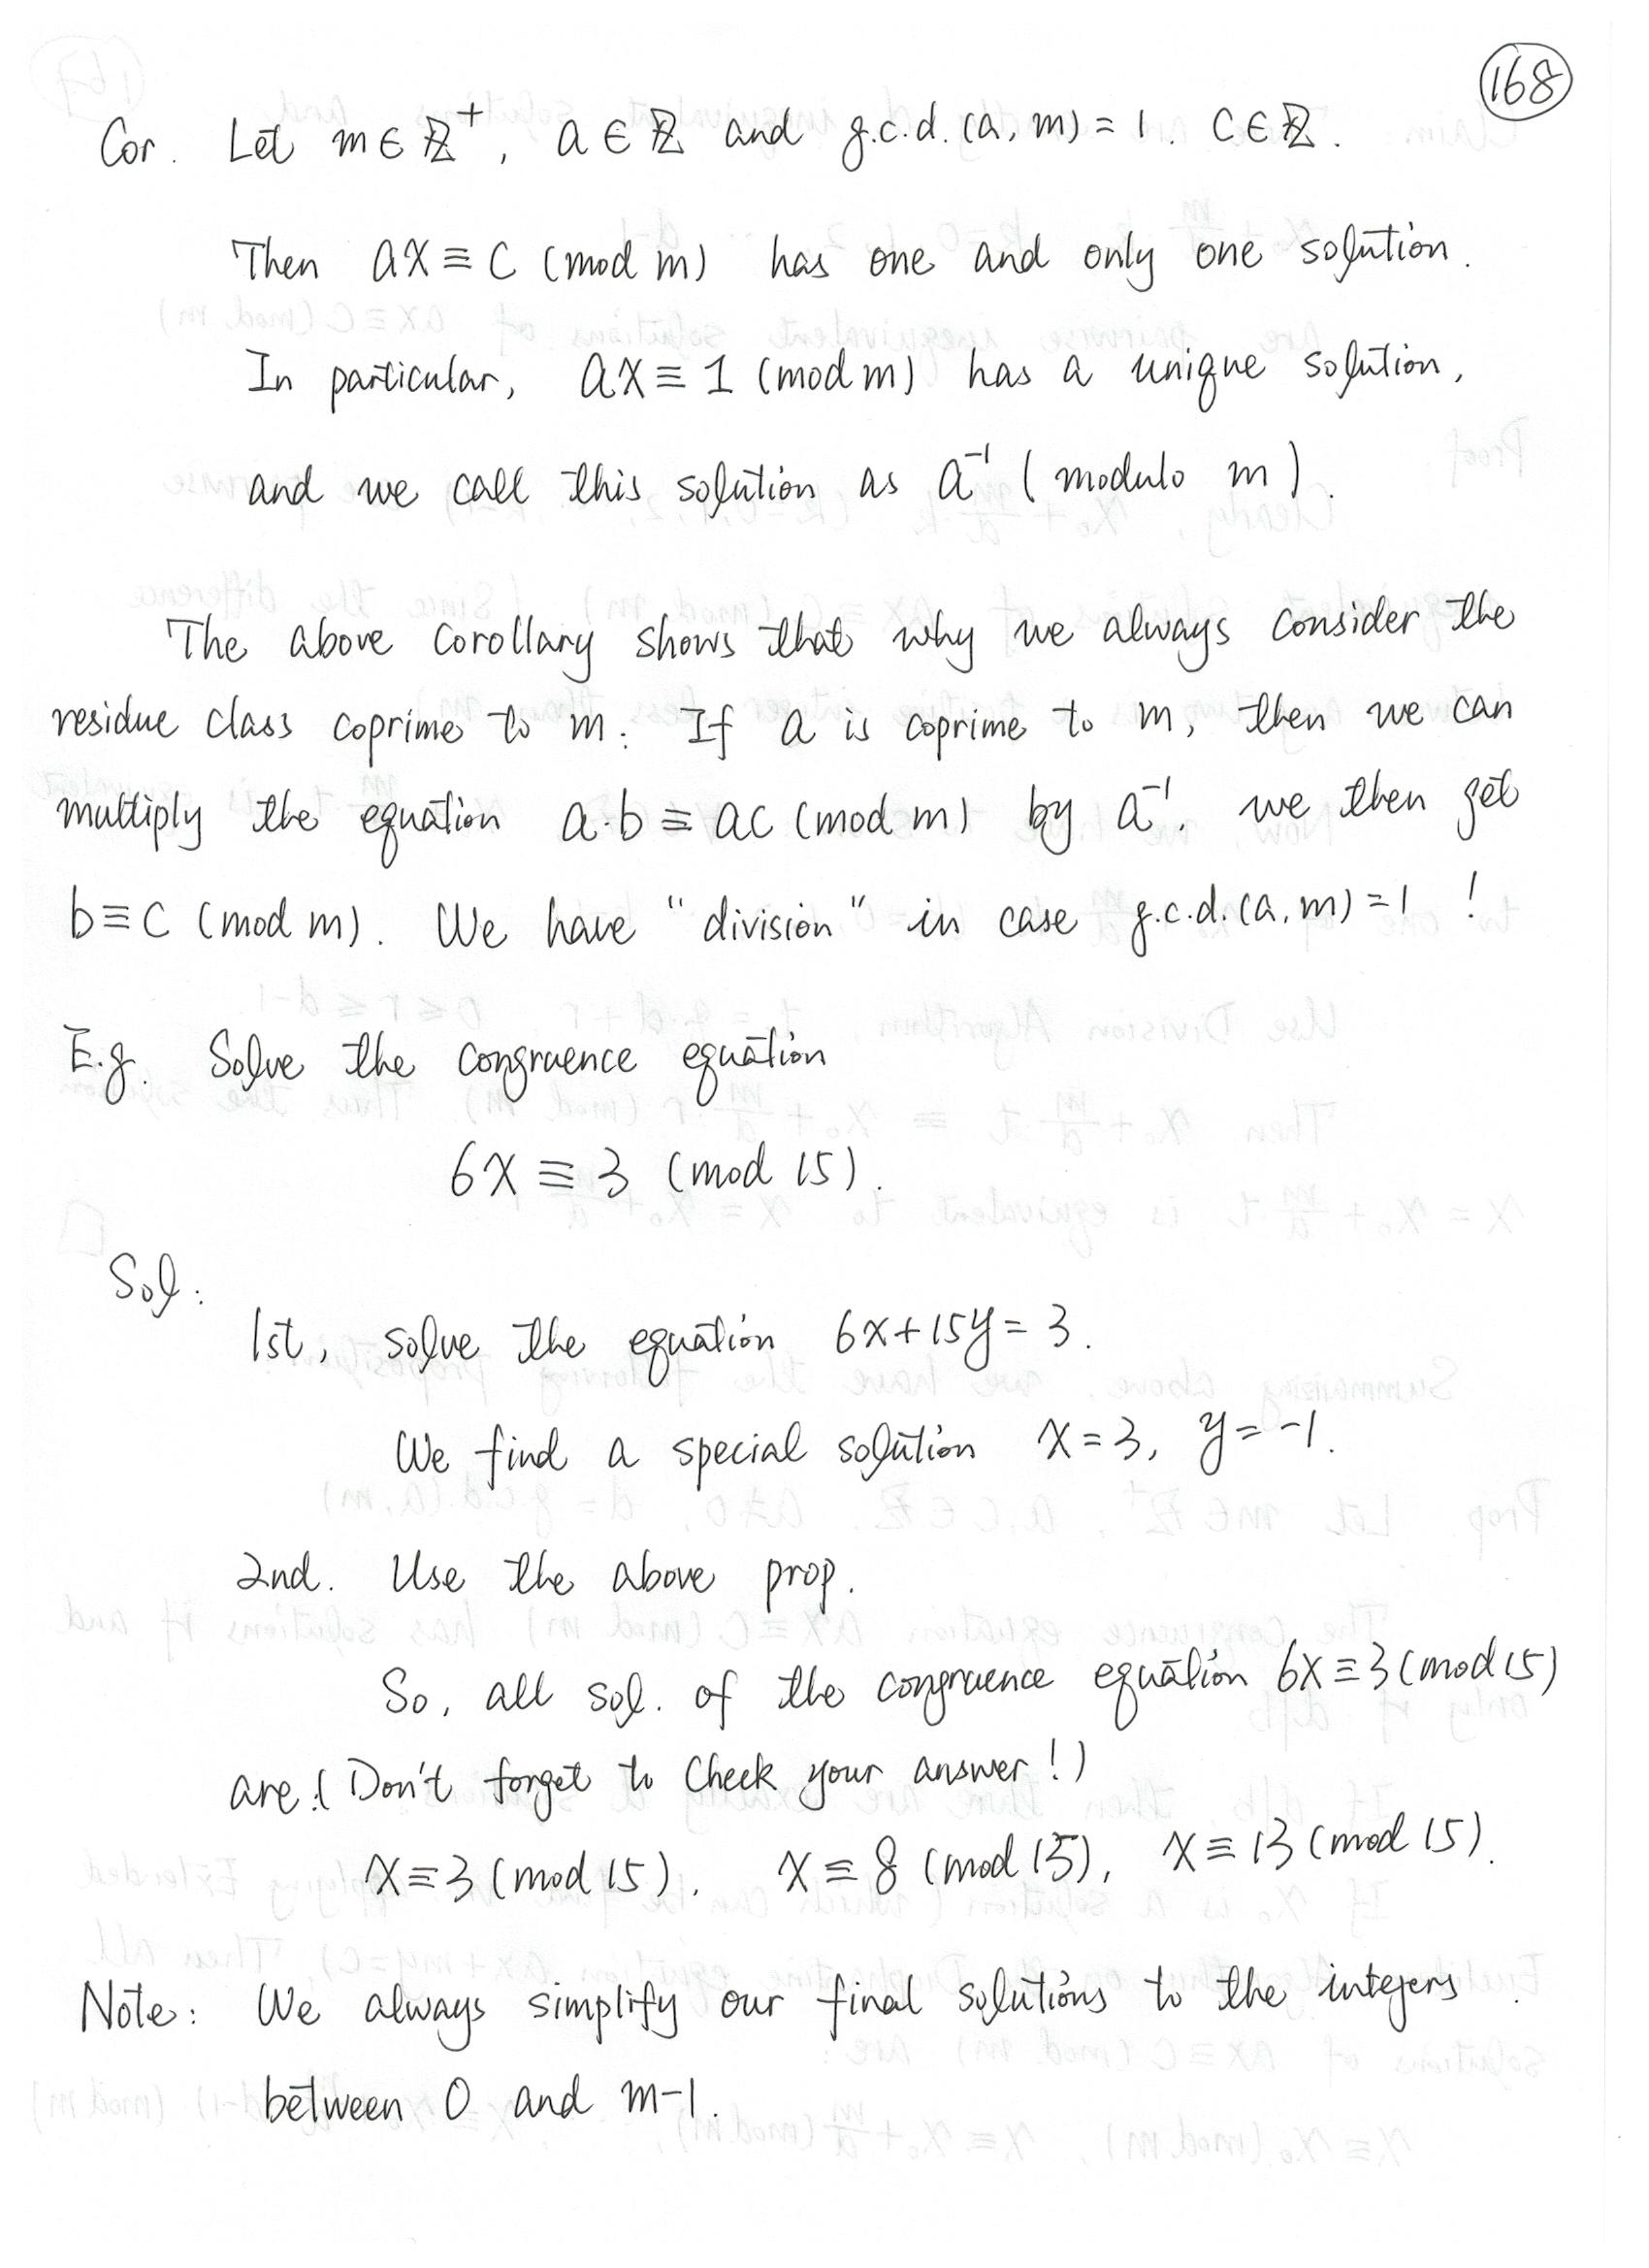 168
Cor. Let m ∈ ℤ⁺, a ∈ ℤ and g.c.d. (a, m) = 1. C ∈ ℤ.
Then aX ≡ C (mod m) has one and only one solution.
In particular, aX ≡ 1 (mod m) has a unique solution,
and we call this solution as a⁻¹ (modulo m).
The above Corollary shows that why we always consider the
residue class coprime to m: If a is coprime to m, then we can
multiply the equation a·b ≡ ac (mod m) by a⁻¹, we then get
b ≡ c (mod m). We have "division" in case g.c.d. (a, m) = 1 !
E.g. Solve the congruence equation
6X ≡ 3 (mod 15).
Sol:
1st, solve the equation 6x + 15y = 3.
We find a special solution x = 3, y = -1.
2nd. Use the above prop.
So, all sol. of the congruence equation 6X ≡ 3 (mod 15)
are: (Don't forget to Check your answer!)
X ≡ 3 (mod 15), X ≡ 8 (mod 15), X ≡ 13 (mod 15).
Note: We always simplify our final solutions to the integers
between 0 and m-1.